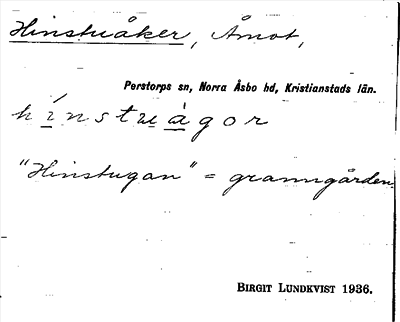 Hinstuåker, Åmot,
Perstorps sn, Norra Åsbo hd, Kristianstads län.
hínstuågor
"Hinstugan" = granngården.
BIRGIT LUNDKVIST 1936.